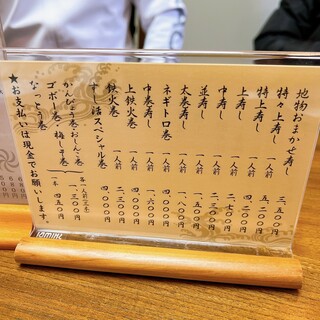 地物おまかせ寿し 一人前 三、五〇〇円
特々上寿し 一人前 五、二〇〇円
特上寿し 一人前 四、二〇〇円
上寿し 一人前
中寿し 一人前 二、七〇〇円
並寿し 一人前 二、二〇〇円
太巻寿し 一人前 一、八〇〇円
ネギトロ巻 一人前
中巻寿し 一人前 一、六〇〇円
上鉄火巻 一人前
鉄火巻 一人前 二、三〇〇円
すし活スペシャル巻 四、〇〇〇円
かんぴょう巻 おしんこ巻
ゴボー巻 梅しそ巻 一、三〇〇円
なっとう巻 一本 四五〇円
★お支払いは現金でお願いします。